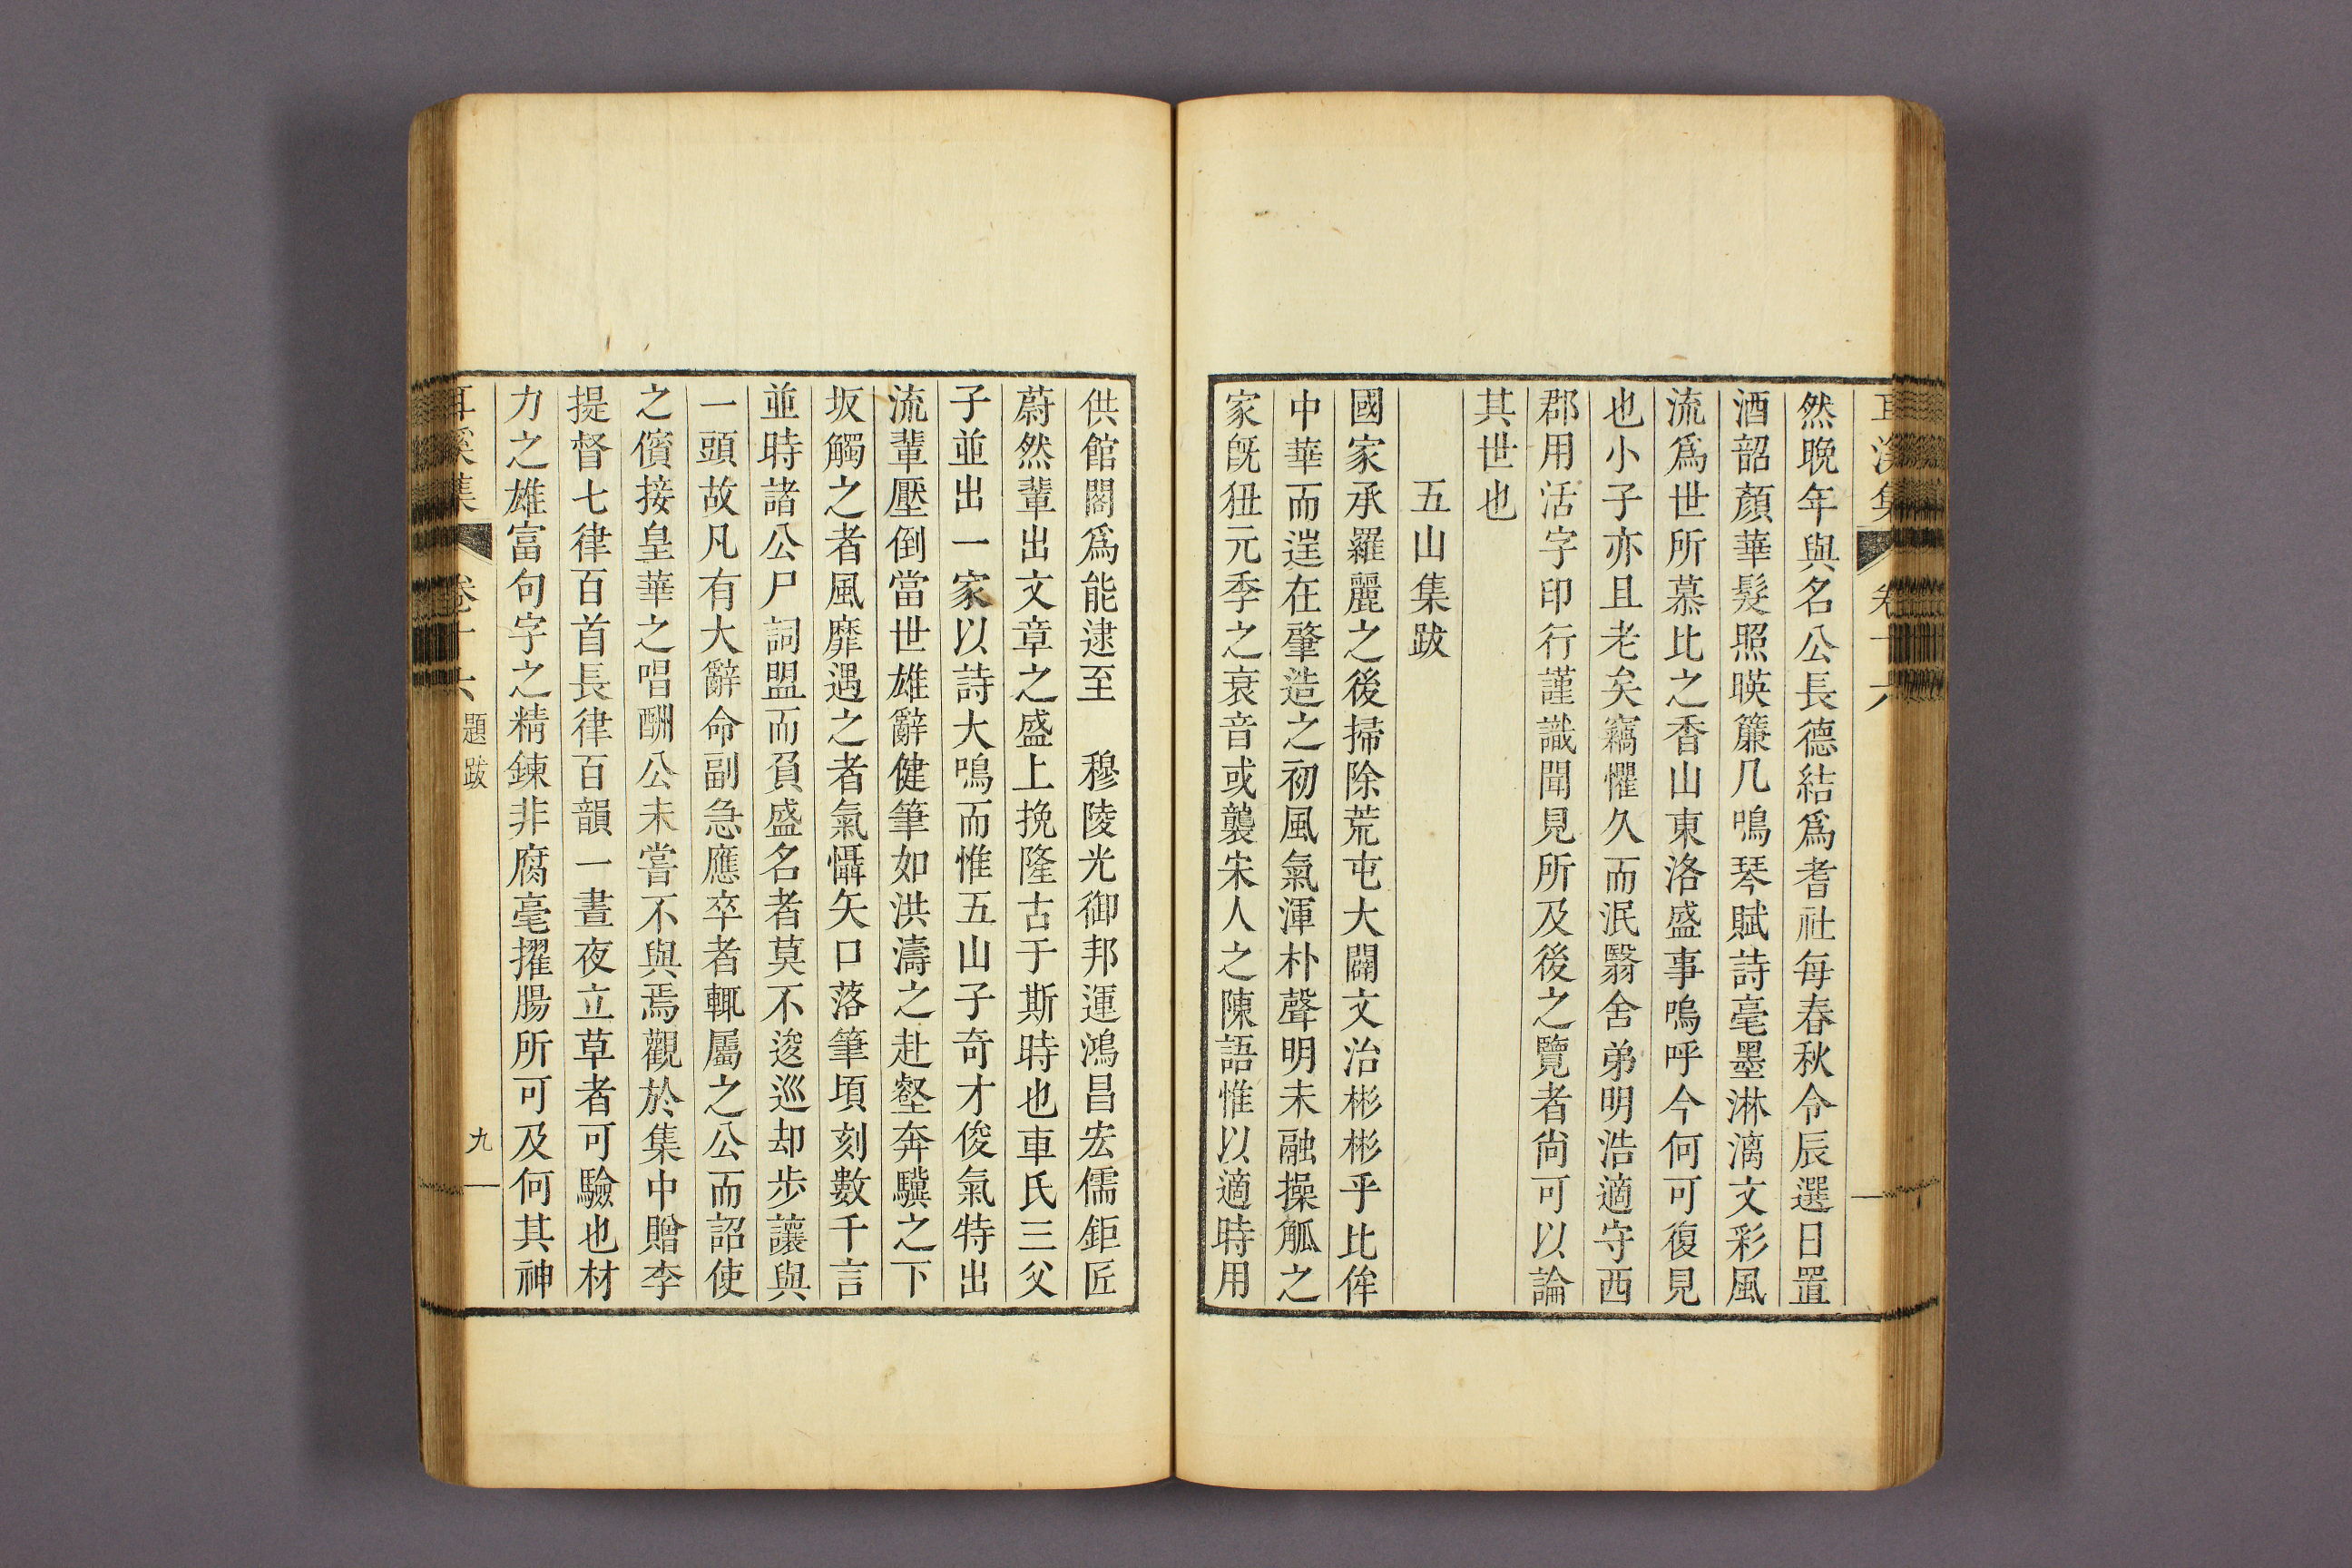 耳溪集 卷十六
然晚年與名公長德結爲耆社每春秋令辰選日置
酒韶顏華髮照暎簾几鳴琴賦詩毫墨淋漓文彩風
流爲世所慕比之香山東洛盛事嗚呼今何可復見
也小子亦且老矣竊懼久而泯翳舍弟明浩適守西
郡用活字印行謹識聞見所及後之覽者尙可以論
其世也
五山集跋
國家承羅麗之後掃除荒屯大闢文治彬彬乎比侔
中華而逞在肇造之初風氣渾朴聲明未融操觚之
家旣狃元季之哀音或襲宋人之陳語惟以適時用
供館閣爲能逮至 穆陵光御邦運鴻昌宏儒鉅匠
蔚然輩出文章之盛上挽隆古于斯時也車氏三父
子並出一家以詩大鳴而惟五山子奇才俊氣特出
流輩壓倒當世雄辭健筆如洪濤之赴壑奔驥之下
坂觸之者風靡遇之者氣懾矢口落筆頃刻數千言
並時諸公尸詞盟而負盛名者莫不逡巡却步讓與
一頭故凡有大辭命副急應卒者輒屬之公而詔使
之儐接皇華之唱酬公未嘗不與焉觀於集中贈李
提督七律百首長律百韻一晝夜立草者可驗也材
力之雄富句字之精鍊非腐毫擢腸所可及何其神
耳溪集 卷十六 題跋 九